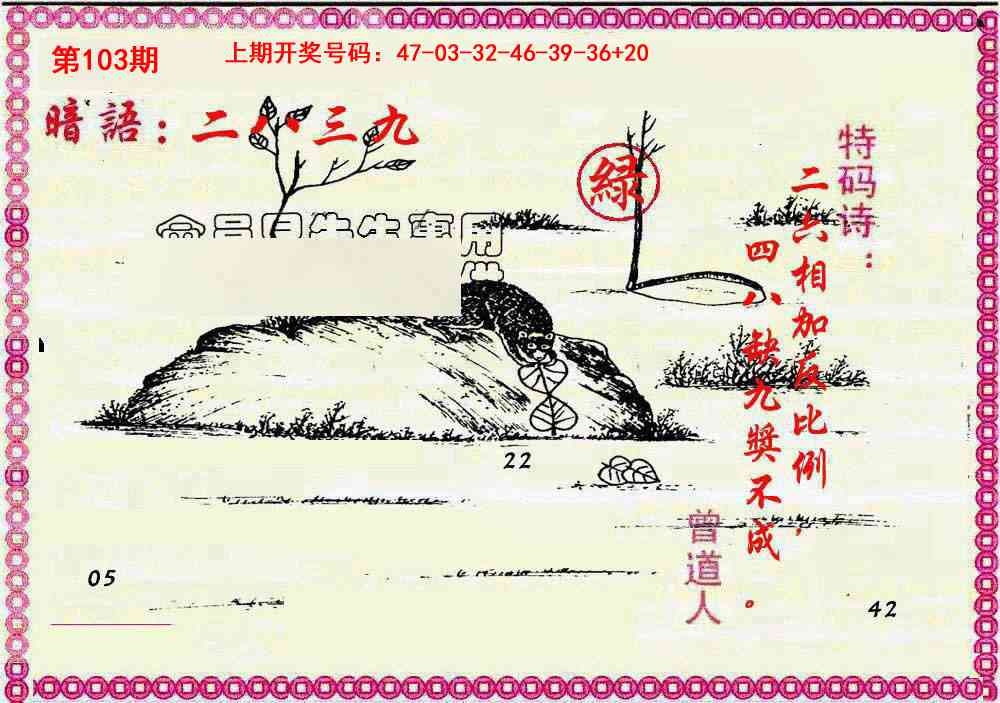 第103期
上期开奖号码：47-03-32-46-39-36+20
暗語：二八三九
綠
特码诗：
二六相加反比例，
四八缺九獎不成。
曾道人
22
05
42